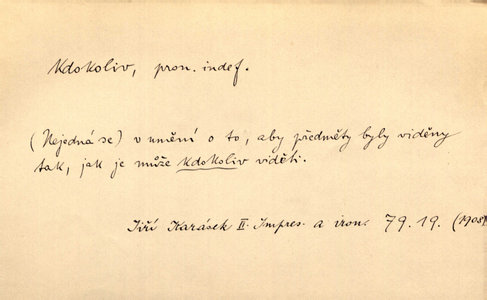 Kdokoliv, pron. indef.
(Nejedná se) v umění o to, aby předměty byly viděny
tak, jak je může kdokoliv viděti.
Jiří Karásek II. Impres. a iron. 79. 19. (1903)